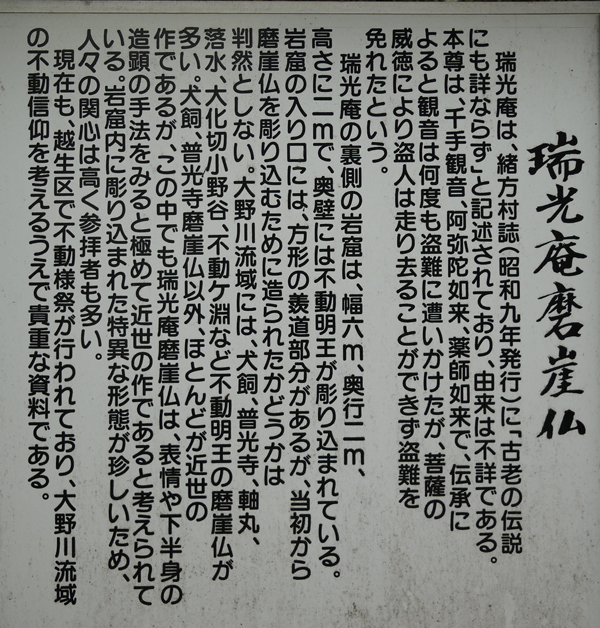 瑞光庵磨崖仏
瑞光庵は、緒方村誌(昭和九年発行)に「古老の伝説
にも詳ならず」と記述されており、由来は不詳である。
本尊は、千手観音、阿弥陀如来、薬師如来で、伝承に
よると観音は何度も盗難に遭いかけたが、菩薩の
威徳により盗人は走り去ることができず盗難を
免れたという。
瑞光庵の裏側の岩窟は、幅六m、奥行二m、
高さに二mで、奥壁には不動明王が彫り込まれている。
岩窟の入り口には、方形の羨道部分があるが、当初から
磨崖仏を彫り込むために造られたかどうかは
判然としない。大野川流域には、犬飼、普光寺、軸丸、
落水、大化切小野谷、不動ケ淵など不動明王の磨崖仏が
多い。犬飼、普光寺磨崖仏以外、ほとんどが近世の
作であるが、この中でも瑞光庵磨崖仏は、表情や下半身の
造顕の手法をみると極めて近世の作であると考えられて
いる。岩窟内に彫り込まれた特異な形態が珍しいため、
人々の関心は高く参拝者も多い。
現在も、越生区で不動様祭が行われており、大野川流域
の不動信仰を考えるうえで貴重な資料である。